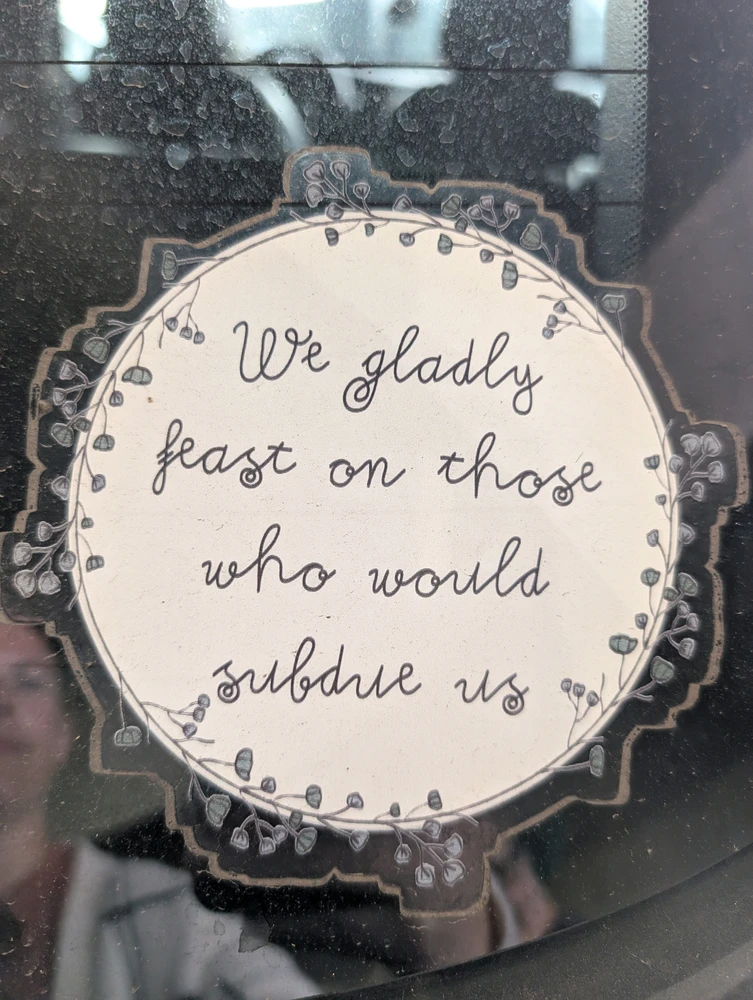 We gladly
feast on those
who would
subdue us